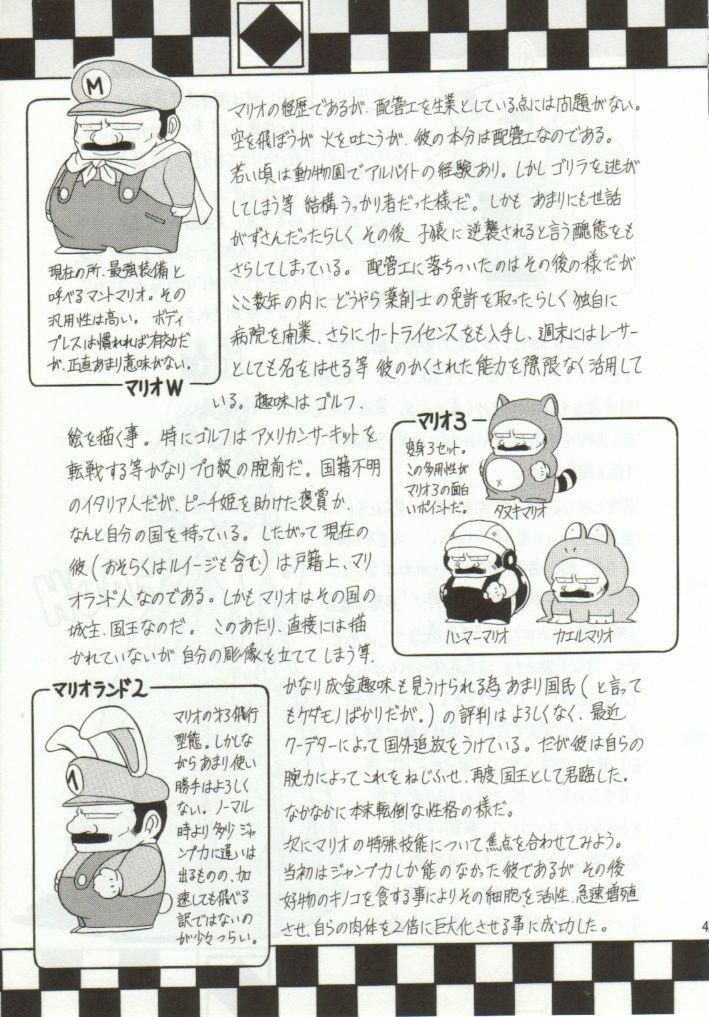 マリオの経歴であるが、配管工を生業としている点には問題がない。
空を飛ぼうが 火を吐こうが、彼の本分は配管工なのである。
若い頃は動物園でアルバイトの経験あり。しかしゴリラを逃が
してしまう等 結構うっかり者だった様だ。しかも あまりにも世話
がずさんだったらしく その後 子猿に逆襲されると言う醜態をも
さらしてしまっている。 配管工に落ちついたのはその後の様だが
ここ数年の内に どうやら薬剤士の免許を取ったらしく 独自に
病院を開業、さらにカートライセンスをも入手し、週末にはレーサー
としても名をはせる等 彼のかくされた能力を際限なく活用して
いる。 趣味はゴルフ、
絵を描く事。 特にゴルフはアメリカンサーキットを
転戦する等かなりプロ級の腕前だ。 国籍不明
のイタリア人だが、ピーチ姫を助けた褒賞か、
なんと自分の国を持っている。したがって 現在の
彼(おそらくはルイージも含む)は戸籍上、マリ
オランド人なのである。しかもマリオはその国の
城主、国王なのだ。 このあたり、直接には描
かれていないが 自分の彫像を立ててしまう等、
かなり成金趣味も見うけられる為 あまり国民(と言って
もケダモノばかりだが。)の評判はよろしくなく、最近
クーデターによって国外追放をうけている。だが彼は自らの
腕力によってこれをねじふせ、再度国王として君臨した。
なかなかに本末転倒な性格の様だ。
次にマリオの特殊技能について焦点を合わせてみよう。
当初はジャンプ力しか能のなかった彼であるが その後
好物のキノコを食する事によりその細胞を活性、急速増殖
させ、自らの肉体を2倍に巨大化させる事に成功した。
M
現在の所、最強装備と
呼べるマントマリオ。その
汎用性は高い。 ボディ
プレスは慣れれば有効だ
が、正直あまり意味がない。
マリオW
マリオ3
変身3セット。
この多用性が
マリオ3の面白
いポイントだ。
タヌキマリオ
ハンマーマリオ
カエルマリオ
マリオランド2
マリオの第3飛行
型態。しかしな
がらあまり使い
勝手はよろしく
ない。ノーマル
時より多少ジャ
ンプ力に違いは
出るものの、加
速しても飛べる
訳ではないの
が少々つらい。
4